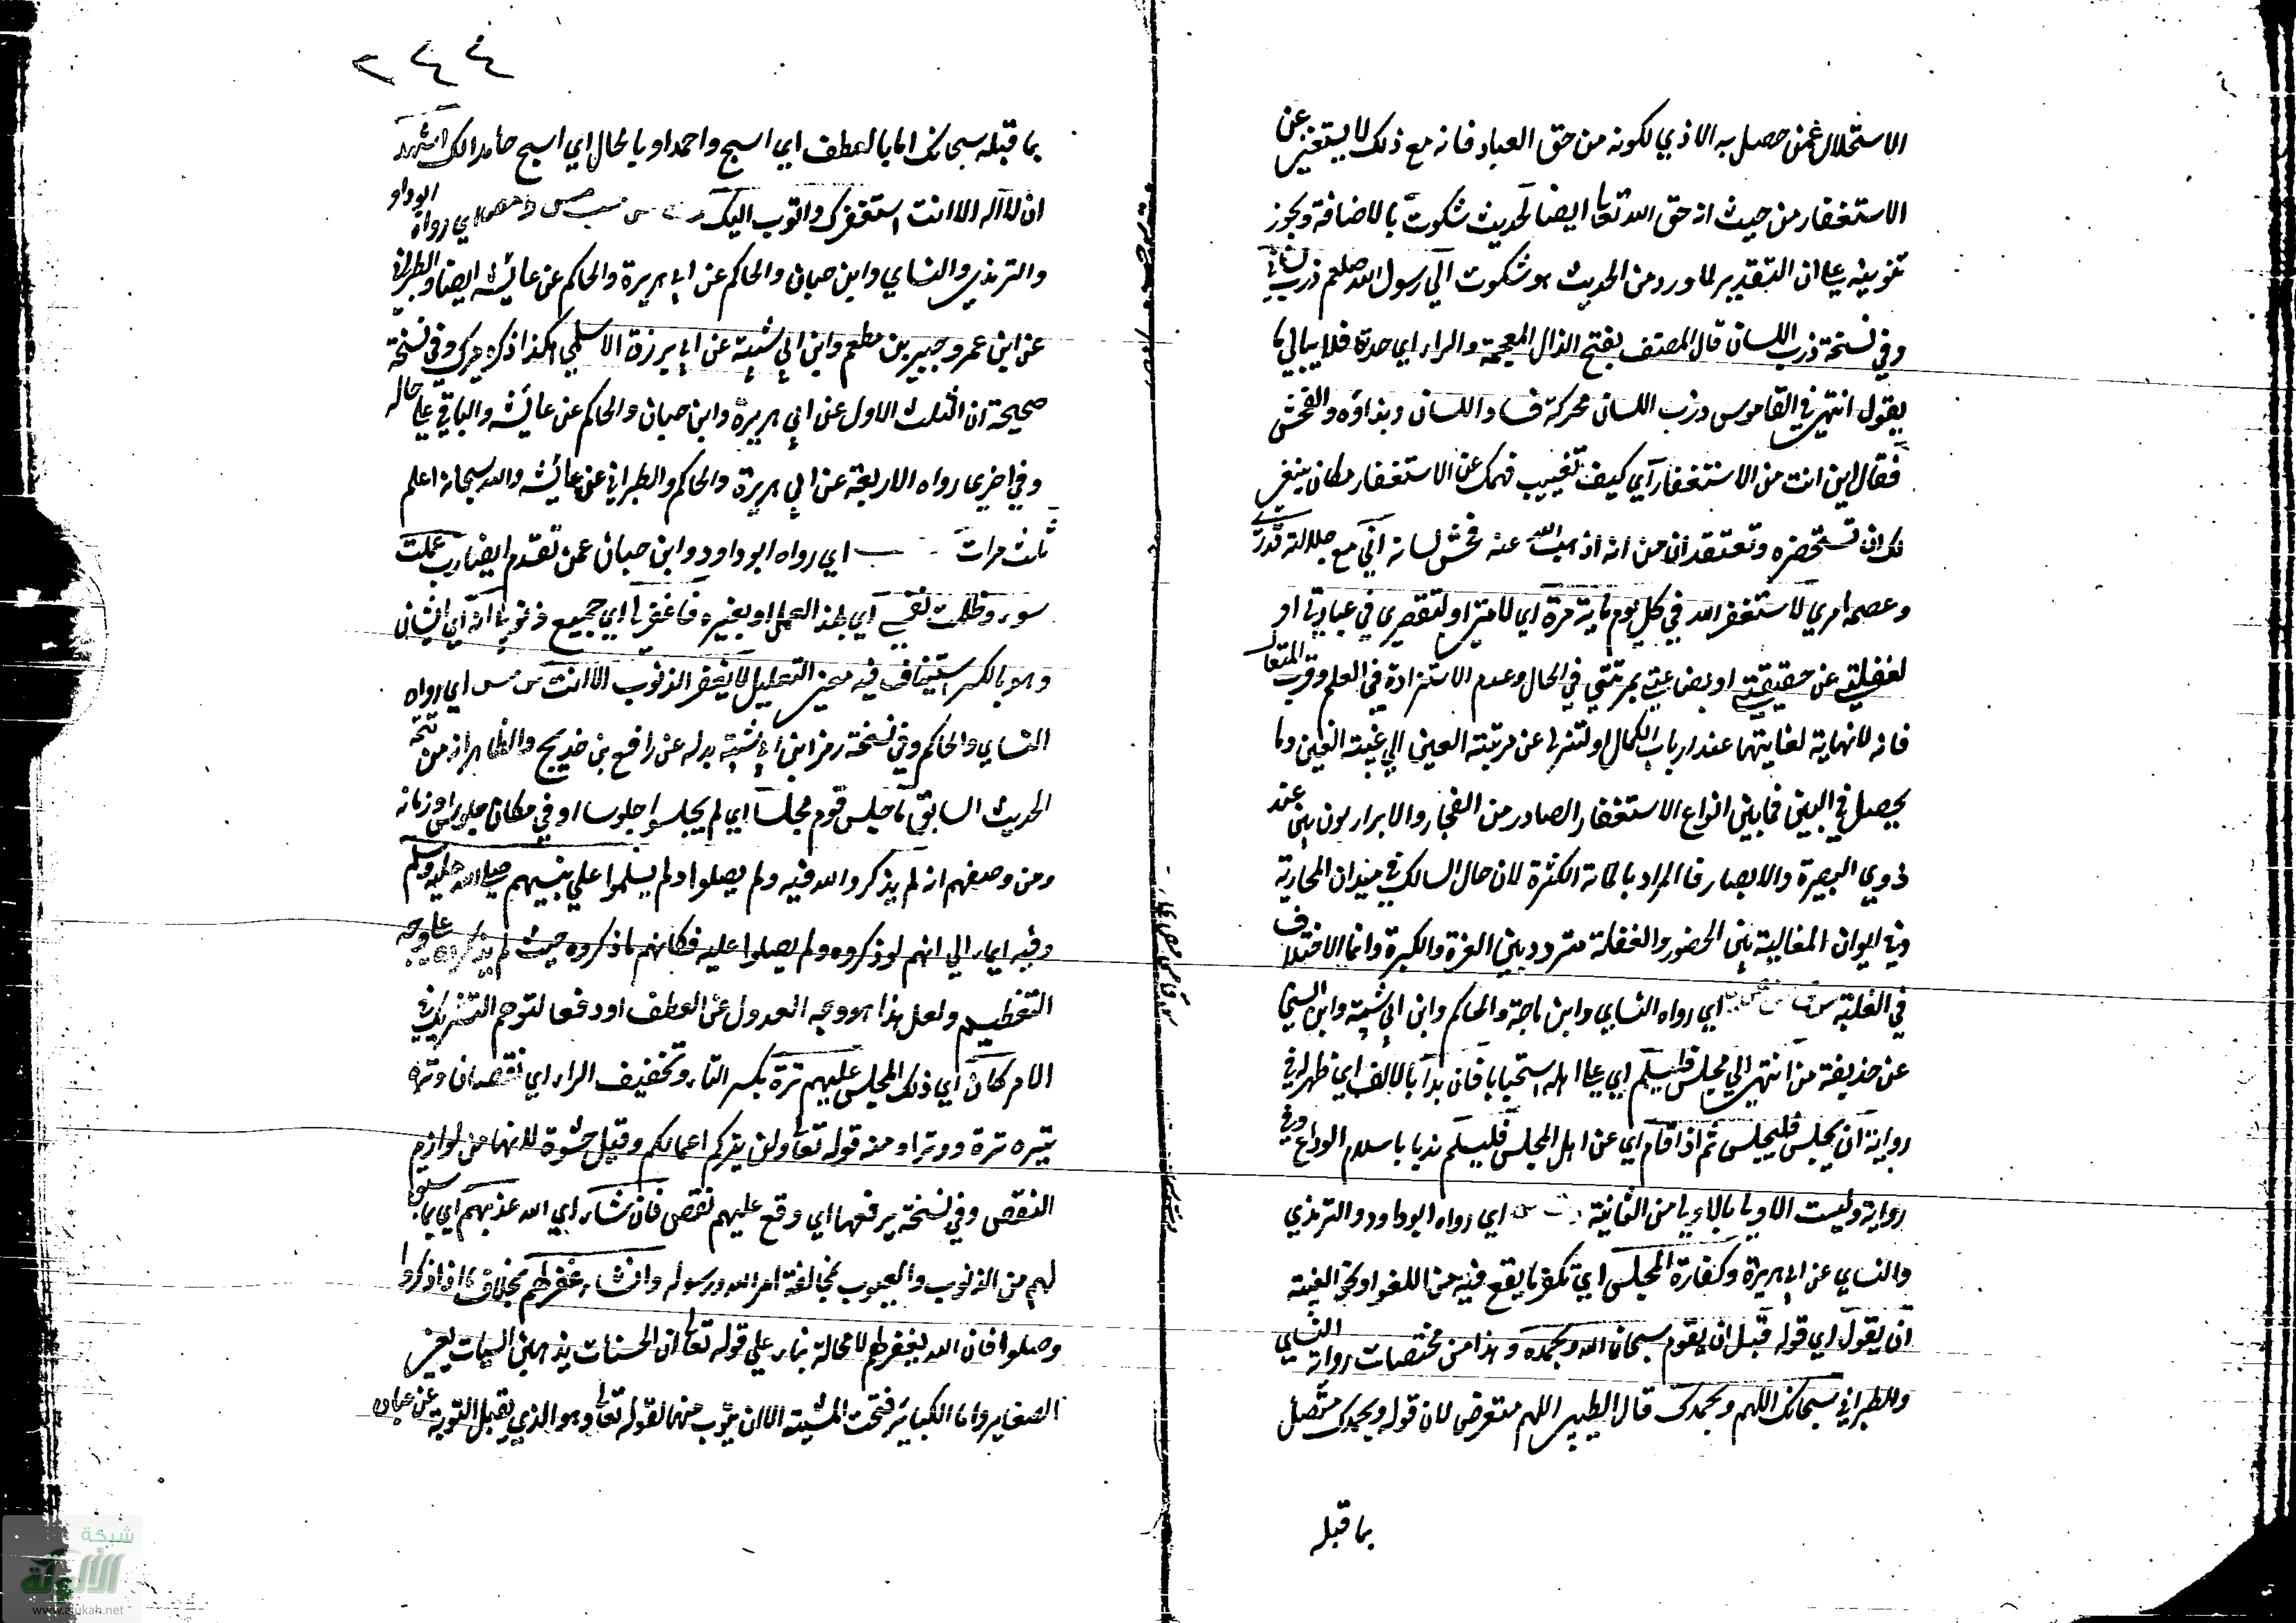 الاستحلال عمن حصل به الاذي لكونه من حق العباد فانه مع ذلك لا يستغني عن
الاستغفار من حيث انه حق الله تعالى ايضا لحديث شكوت بالاضافة ويجوز
تنوينه على ان التقدير لما ورد من الحديث هو شكوت الي رسول الله صلعم ذرب لساني
وفي نسخة ذرب اللسان قال المصنف بفتح الذال المعجمة والراء اي حدته فلا يبالي بما
يقول انتهى وفي القاموس ذرب اللسان محركة فساد اللسان وبذاؤه والفحش
فقال اين انت من الاستغفار اي كيف تغيب فهمك عن الاستغفار وكان ينبغي
لك ان تستحضره وتعتقد ان من انه اذهب الله عنه فحش لسانه اني مع جلالة قدري
وعصمة امري لاستغفر الله في كل يوم مائة مرة اي لامتي او لتقصيري في عبادتي او
لغفلتي عن حقيقتي او بضاعتي بمرتبتي في الحال وعدم الاستزادة في العلم وقرب المتعال
فانه لا نهاية لغايتها عند ارباب الكمال او لتنزلي عن مرتبة العين الي غيبة الغين وما
يحصل في البين فما بين انواع الاستغفار الصادر من الفجار والابرار بون بين عند
ذوي البصيرة والابصار فالمراد بالمائة الكثرة لان حال السالك في ميدان المحاربة
وفي ايوان المغالبة بين الحضور والغفلة متردد بين العزة والكبرة وانما الاختلاف
في الغلبة س ق مس مص ي اي رواه النسائي وابن ماجة والحاكم وابن ابي شيبة وابن السني
عن حذيفة من انتهى الي مجلس فليسلم اي على اهله استحبابا فان بدا بالالف اي ظهر له في
رواية ان يجلس فليجلس ثم اذا قام اي عن اهل المجلس فليسلم ندبا باسلام الوداع وفي
رواية وليست الاولى بالاولى من الثانية د ت س اي رواه ابو داود والترمذي
والنسائي عن ابي هريرة وكفارة المجلس اي تكفر ما يقع فيه من اللغو او نحو الغيبة
ان يقول اي قوله قبل ان يقوم سبحان الله وبحمده وهذا من مختصات رواية النسائي
وللطبراني سبحانك اللهم وبحمدك قال الطيبي اللهم متعرض لان قوله وبحمدك متصل
بما قبله
٢٤٤
بما قبله سبحانك اما بالعطف اي اسبح واحمد او بالحال اي اسبح حامدا لك اشهد
ان لا اله الا انت استغفرك واتوب اليك د ت س حب مس ط مص اي رواه ابو داو
والترمذي والنسائي وابن حبان والحاكم عن ابي هريرة والحاكم عن عايشة ايضا والطبراني
عن ابن عمر وجبير بن مطعم وابن ابي شيبة عن ابي برزة الاسلمي هكذا ذكره ميرك وفي نسخة
صحيحة ان الثلث الاول عن ابي هريرة وابن حبان والحاكم عن عايشة والباقي على حاله
وفي اخرى رواه الاربعة عن ابي هريرة والحاكم والطبراني عن عايشة والله سبحانه اعلم
ثلث مرات د حب اي رواه ابو داود وابن حبان عمن تقدم ايضا رب عملت
سوء وظلمت نفسي اي بهذا العمل او بغيره فاغفر لي اي جميع ذنوبي انه اي الشان
وهو بالكسر استيناف فيه معنى التعليل لا يغفر الذنوب الا انت س مس اي رواه
النسائي والحاكم وفي نسخة رمز ابن ابي شيبة بدله عن رافع بن خديج والظاهر انه من تتمة
الحديث السابق ما جلس قوم مجلسا اي لم يجلسوا جلوسا او في مكان جلوس او زمانه
ومن وصفهم انه لم يذكروا الله فيه ولم يصلوا ولم يسلموا علي نبيهم صلى الله عليه وسلم
وفيه ايماء الي انهم لو ذكروه ولم يصلوا عليه فكانهم ما ذكروه حيث لم يذكروه على وجه
التعظيم ولعل هذا هو وجه العدول عن العطف او دفعا لتوهم التشريك في
الامر كان اي ذلك المجلس عليهم ترة بكسر التاء وتخفيف الراء اي نقصان وتره
يتيره ترة ووترا ومنه قوله تعالى ولن يتركم اعمالكم وقيل حسرة لانها من لوازم
النقص وفي نسخة برفعها اي وقع عليهم نقص فان شاء اي الله عذبهم اي بما سلف
لهم من الذنوب والعيوب لمخالفة امر الله ورسوله وان شاء غفر لهم بخلاف ما اذا ذكروا
وصلوا فان الله يغفر لهم لا محالة بناء علي قوله تعالى ان الحسنات يذهبن السيات يعني
الصغاير واما الكبائر فتحت المشية الا ان يتوب عنها لقوله تعالى وهو الذي يقبل التوبة عن عباده
شبكة
الألوكة
www.alukah.net